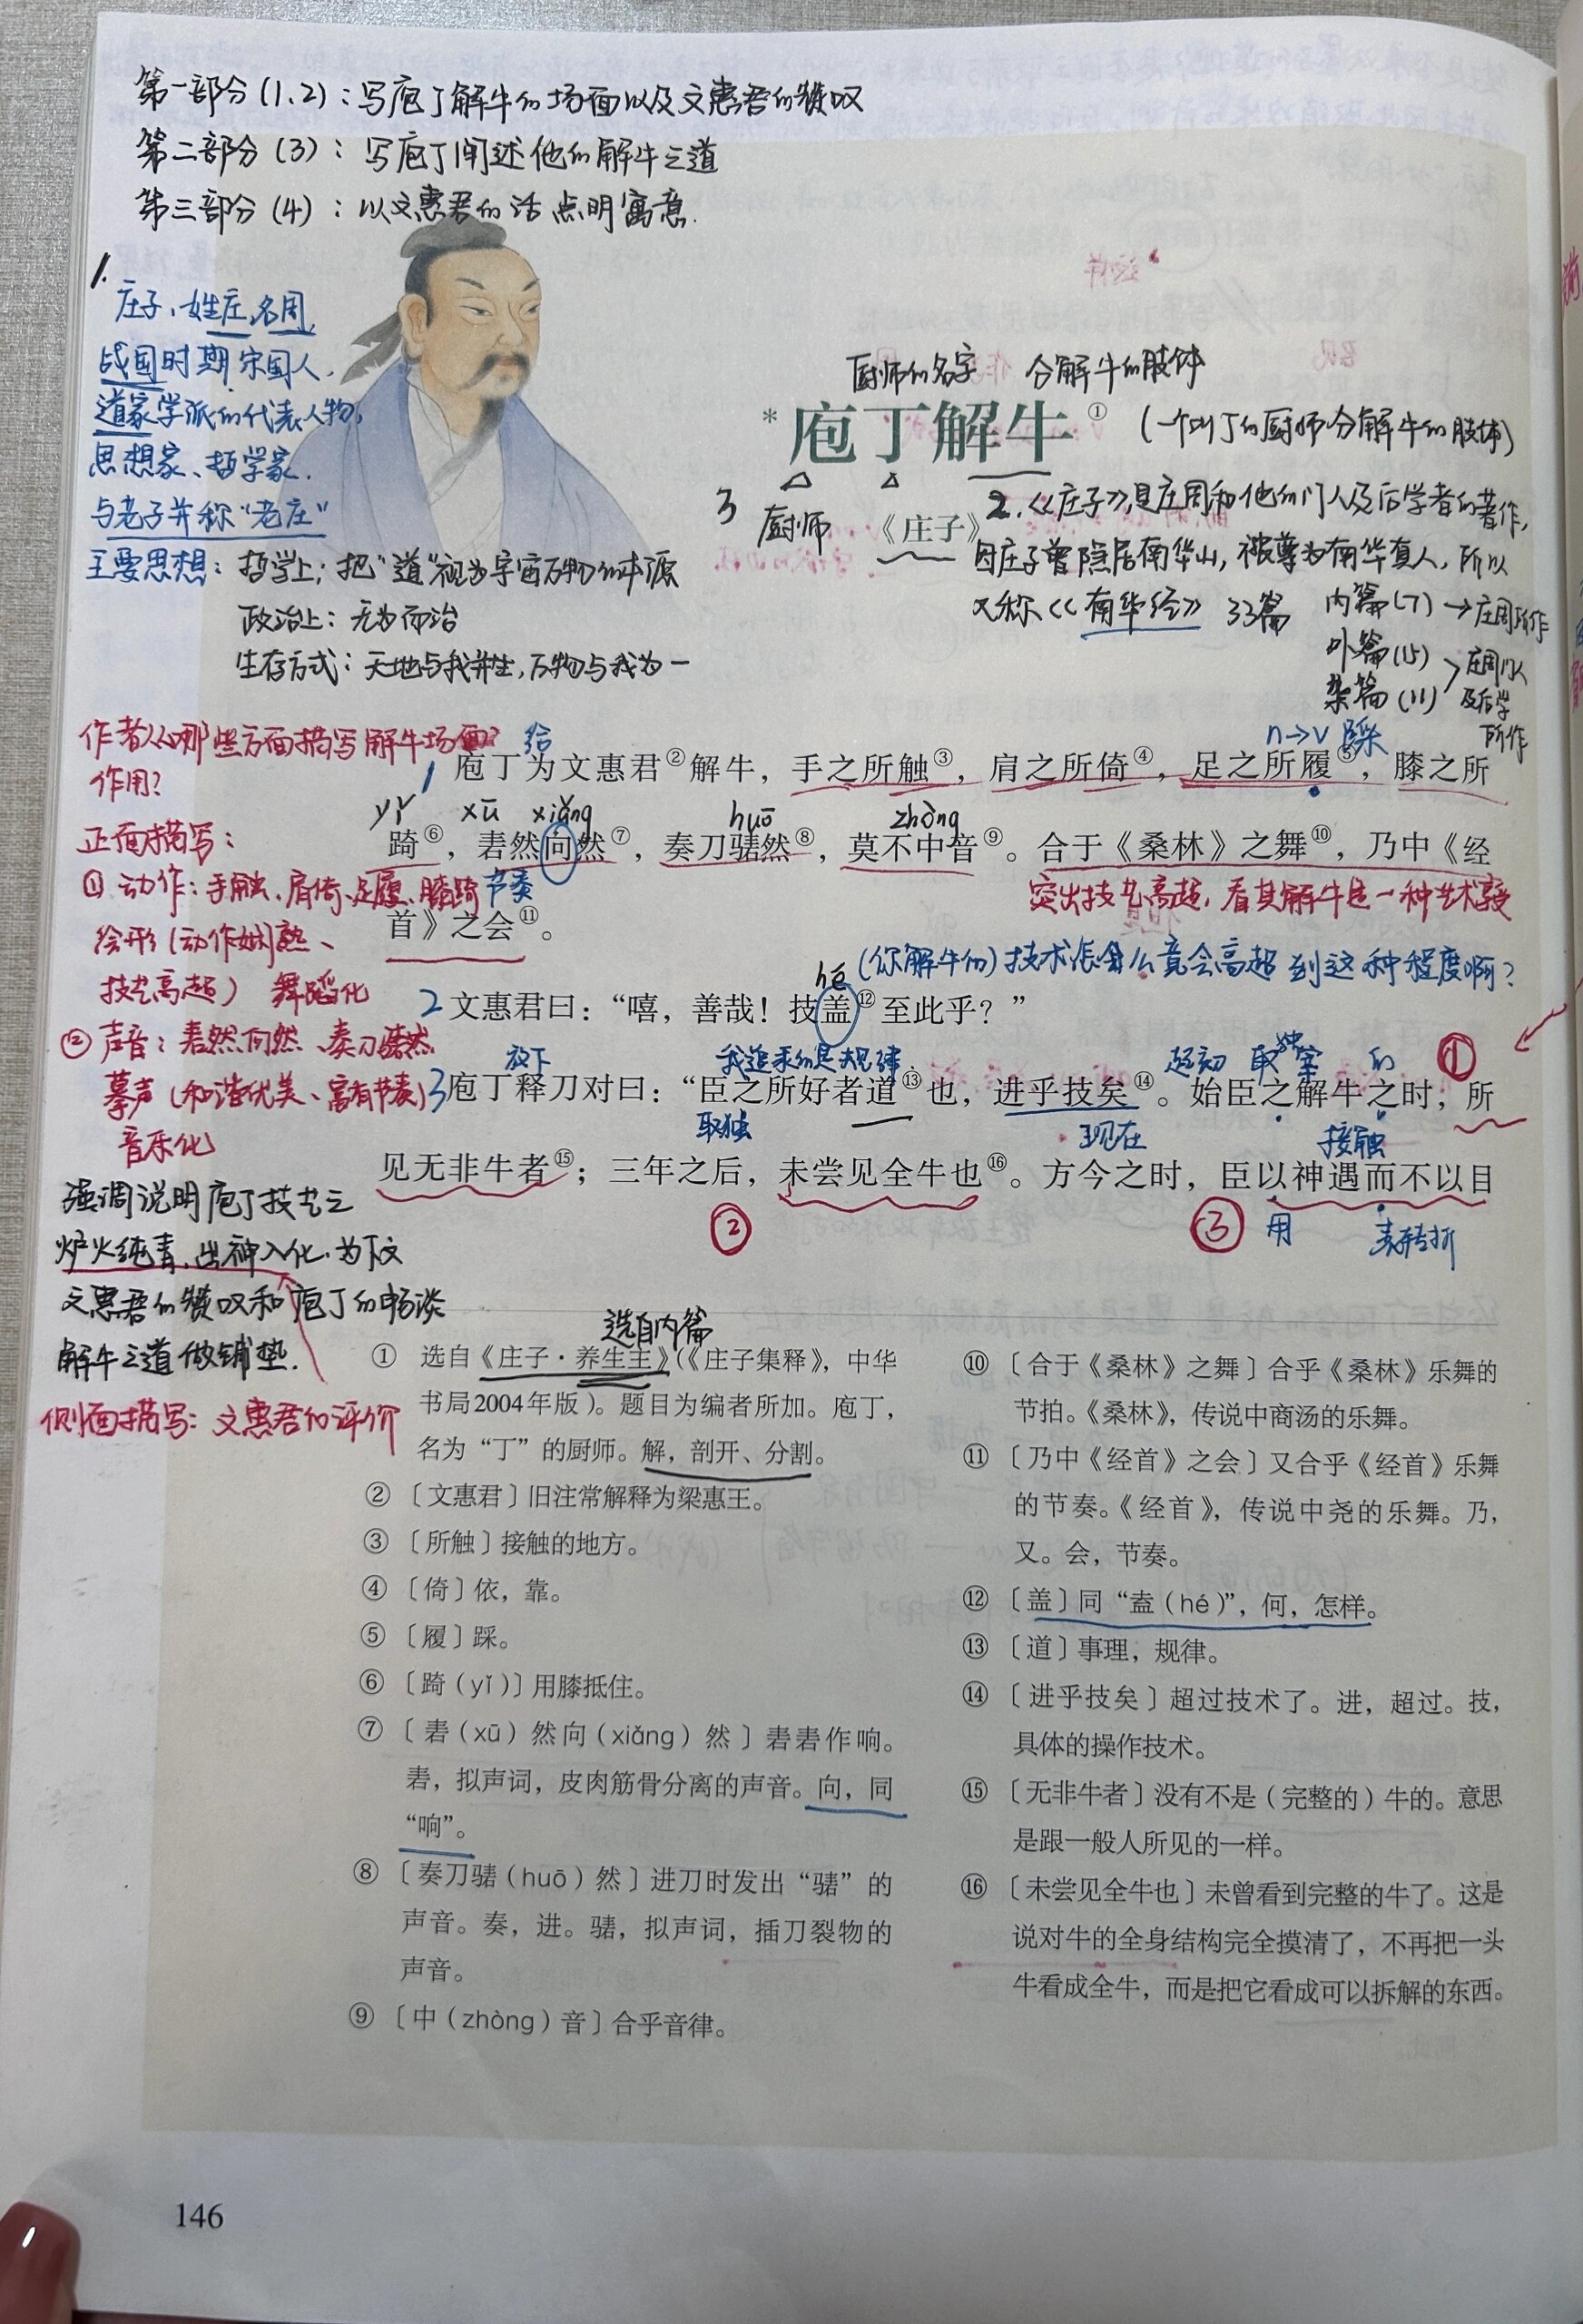 第一部分(1、2)：写庖丁解牛的场面以及文惠君的赞叹
第二部分(3)：写庖丁阐述他的解牛之道
第三部分(4)：以文惠君的话点明寓意.
1.
庄子、姓庄,名周,
战国时期宋国人,
道家学派的代表人物,
思想家、哲学家.
与老子并称“老庄”
主要思想：哲学上：把“道”视为宇宙万物的本源
政治上：无为而治
生存方式：天地与我并生,万物与我为一
厨师的名字 分解牛的肢体
*庖丁解牛①
(一个叫丁的厨师分解牛的肢体)
3 厨师
《庄子》
2.《庄子》,是庄周和他的门人及后学者的著作,
因庄子曾隐居南华山，被尊为南华真人，所以
又称《南华经》 33篇 内篇(7)→庄周所作
外篇(15)
杂篇(11)
庄周以
及后学
所作
作者从哪些方面描写解牛场面?
作用?
给
n→v 踩
1 庖丁为文惠君②解牛，手之所触③，肩之所倚④，足之所履⑤，膝之所
yǐ xū xiǎng huō zhòng
踦⑥，砉然向然⑦，奏刀𬴃然⑧，莫不中音⑨。合于《桑林》之舞⑩，乃中《经
节奏
突出技艺高超，看其解牛是一种艺术享受
首》之会⑪。
正面描写：
① 动作：手触、肩倚、足履、膝踦
绘形(动作娴熟、
技艺高超) 舞蹈化
② 声音：砉然向然、奏刀𬴃然
摹声(和谐优美、富有节奏)
音乐化
hé (你解牛的)技术怎么竟会高超到这种程度啊?
2 文惠君曰：“嘻，善哉！技盖⑫至此乎？”
放下 我追求的是规律, 起初 取独 宰 的 ①
3 庖丁释刀对曰：“臣之所好者道⑬也，进乎技矣⑭。始臣之解牛之时，所
取独 现在 接触
见无非牛者⑮；三年之后，未尝见全牛也⑯。方今之时，臣以神遇而不以目
② ③ 用 表转折
强调说明庖丁技艺之
炉火纯青,出神入化.为下文
文惠君的赞叹和庖丁的畅谈
解牛之道做铺垫.
侧面描写：文惠君的评价
选自内篇
① 选自《庄子·养生主》（《庄子集释》，中华
书局2004年版）。题目为编者所加。庖丁，
名为“丁”的厨师。解，剖开、分割。
② 〔文惠君〕旧注常解释为梁惠王。
③ 〔所触〕接触的地方。
④ 〔倚〕依，靠。
⑤ 〔履〕踩。
⑥ 〔踦（yǐ）〕用膝抵住。
⑦ 〔砉（xū）然向（xiǎng）然〕砉砉作响。
砉，拟声词，皮肉筋骨分离的声音。向，同
“响”。
⑧ 〔奏刀𬴃（huō）然〕进刀时发出“𬴃”的
声音。奏，进。𬴃，拟声词，插刀裂物的
声音。
⑨ 〔中（zhòng）音〕合乎音律。
⑩ 〔合于《桑林》之舞〕合乎《桑林》乐舞的
节拍。《桑林》，传说中商汤的乐舞。
⑪ 〔乃中《经首》之会〕又合乎《经首》乐舞
的节奏。《经首》，传说中尧的乐舞。乃，
又。会，节奏。
⑫ 〔盖〕同“盍（hé）”，何，怎样。
⑬ 〔道〕事理，规律。
⑭ 〔进乎技矣〕超过技术了。进，超过。技，
具体的操作技术。
⑮ 〔无非牛者〕没有不是（完整的）牛的。意思
是跟一般人所见的一样。
⑯ 〔未尝见全牛也〕未曾看到完整的牛了。这是
说对牛的全身结构完全摸清了，不再把一头
牛看成全牛，而是把它看成可以拆解的东西。
146